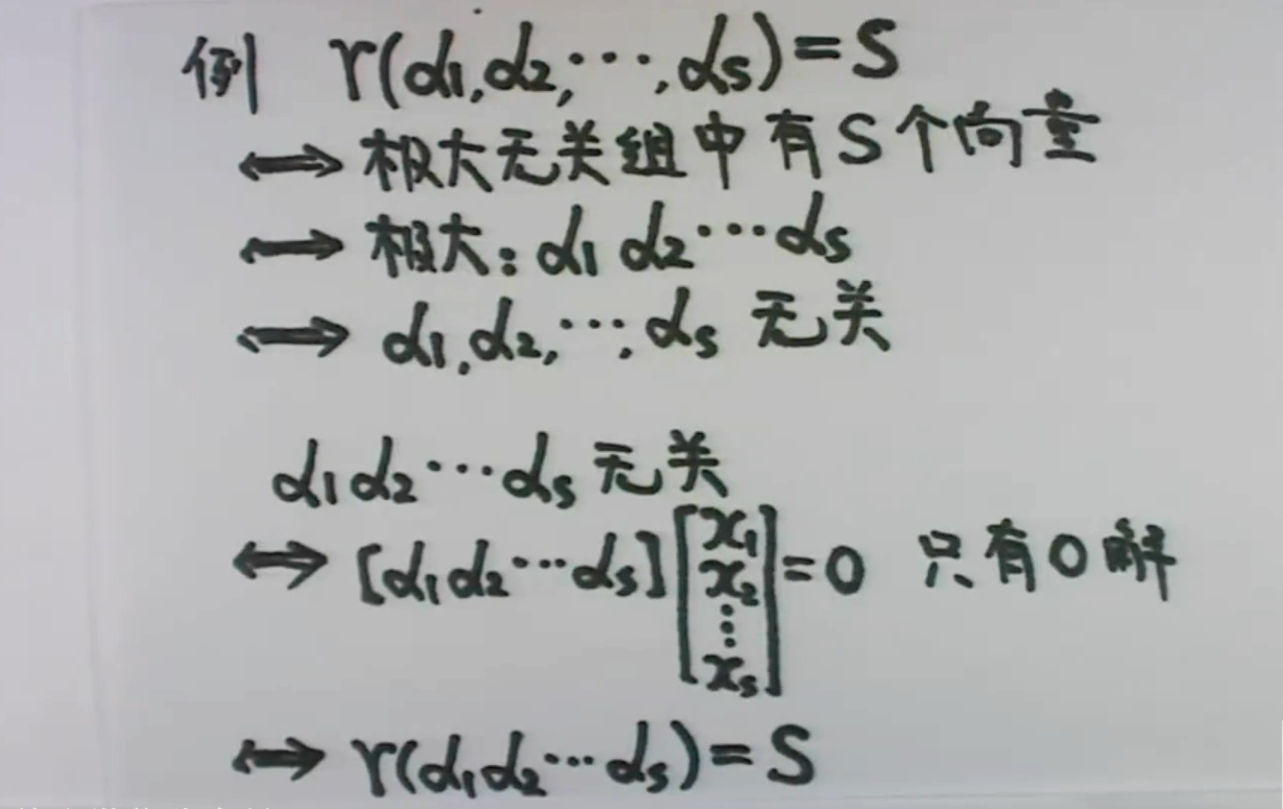 例 r(α1,α2,⋯,αs)=S
⟺ 极大无关组中有S个向量
⟺ 极大:α1 α2⋯αs
⟺ α1,α2,⋯,αs 无关
α1α2⋯αs无关
⟺ [α1α2⋯αs][x1 x2 ⋮ xs]=0 只有0解
⟺ r(α1α2⋯αs)=S